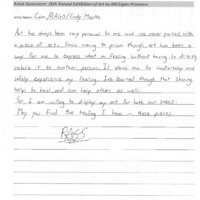 Artist Statement: 26th Annual Exhibition of Art by Michigan Prisoners
Artist Name: Cam/RAGS/Cody Master
Art has always been very personal to me and i've never parted with
a piece of art. Since coming to prison though, art has been a
way for me to express what im feeling without having to directly
relate it to another person. It allows me to comfortably and
safely experience my feeling. Ive learned though that sharing
helps to heal and can help others as well.
So, I am willing to display my art for both our sakes.
May you find the healing I have in these pieces.
RAGS